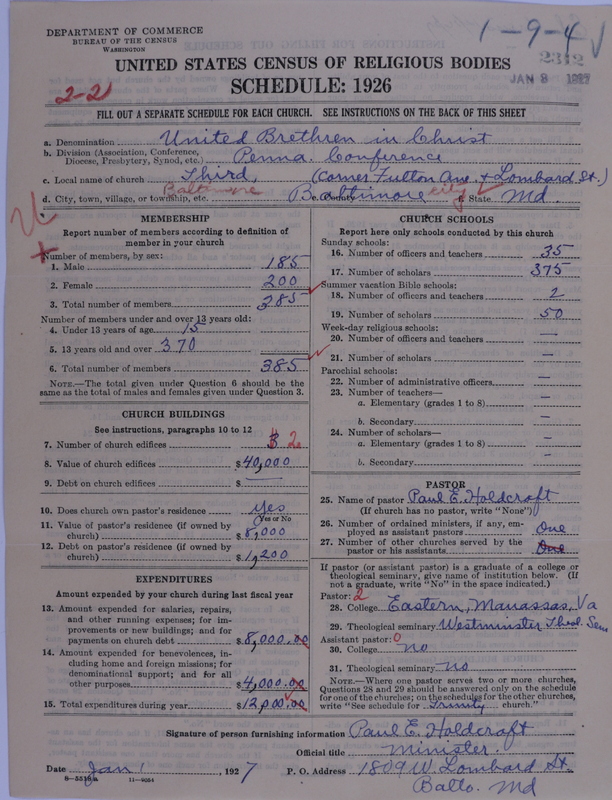 DEPARTMENT OF COMMERCE
BUREAU OF THE CENSUS
WASHINGTON
1-9-4
2312
JAN 8 1927
UNITED STATES CENSUS OF RELIGIOUS BODIES
SCHEDULE: 1926
2-2
FILL OUT A SEPARATE SCHEDULE FOR EACH CHURCH. SEE INSTRUCTIONS ON THE BACK OF THIS SHEET
a. Denomination United Brethren in Christ
b. Division (Association, Conference, Diocese, Presbytery, Synod, etc.) Penna. Conference
c. Local name of church Third, (Corner Fulton Ave. & Lombard St.)
d. City, town, village, or township, etc. Baltimore e. County Baltimore City f. State Md.
MEMBERSHIP
Report number of members according to definition of
member in your church
Number of members, by sex:
1. Male 185
2. Female 200
3. Total number of members 385
Number of members under and over 13 years old:
4. Under 13 years of age 15
5. 13 years old and over 370
6. Total number of members 385
NOTE.—The total given under Question 6 should be the
same as the total of males and females given under Question 3.
CHURCH BUILDINGS
See instructions, paragraphs 10 to 12
7. Number of church edifices 2
8. Value of church edifices $40,000
9. Debt on church edifices $ —
10. Does church own pastor's residence Yes
(Yes or No)
11. Value of pastor's residence (if owned by
church) $8,000
12. Debt on pastor's residence (if owned by
church) $1,200
EXPENDITURES
Amount expended by your church during last fiscal year
13. Amount expended for salaries, repairs,
and other running expenses; for im-
provements or new buildings; and for
payments on church debt $8,000.00
14. Amount expended for benevolences, in-
cluding home and foreign missions; for
denominational support; and for all
other purposes $4,000.00
15. Total expenditures during year $12,000.00
CHURCH SCHOOLS
Report here only schools conducted by this church
Sunday schools:
16. Number of officers and teachers 35
17. Number of scholars 375
Summer vacation Bible schools:
18. Number of officers and teachers 2
19. Number of scholars 50
Week-day religious schools:
20. Number of officers and teachers —
21. Number of scholars —
Parochial schools:
22. Number of administrative officers —
23. Number of teachers—
a. Elementary (grades 1 to 8) —
b. Secondary —
24. Number of scholars—
a. Elementary (grades 1 to 8) —
b. Secondary —
PASTOR
25. Name of pastor Paul E. Holdcraft
(If church has no pastor, write "None")
26. Number of ordained ministers, if any, em-
ployed as assistant pastors One
27. Number of other churches served by the
pastor or his assistants One
If pastor (or assistant pastor) is a graduate of a college or
theological seminary, give name of institution below. (If
not a graduate, write "No" in the space indicated.)
Pastor: 2
28. College Eastern, Manassas, Va
29. Theological seminary Westminster Theol. Sem
Assistant pastor: 0
30. College no
31. Theological seminary no
NOTE.—Where one pastor serves two or more churches,
Questions 28 and 29 should be answered only on the schedule
for one of the churches; on the schedules for the other churches,
write "See schedule for Trinity church."
Signature of person furnishing information Paul E. Holdcraft
Official title Minister.
Date Jan 1, 1927 P. O. Address 1809 W. Lombard St.
Balto. Md